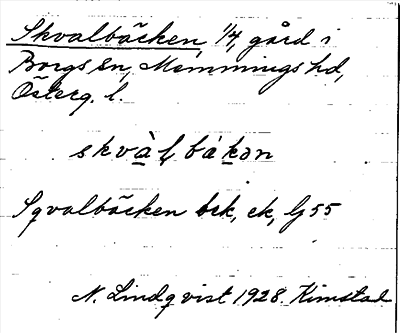 Skvalbäcken, 1/4, gård i
Borgs sn, Memmings hd,
Österg. l.
skvàl bákən
Sqvalbäcken bek, ek, Gj 55
N. Lindqvist 1928. Kimstad